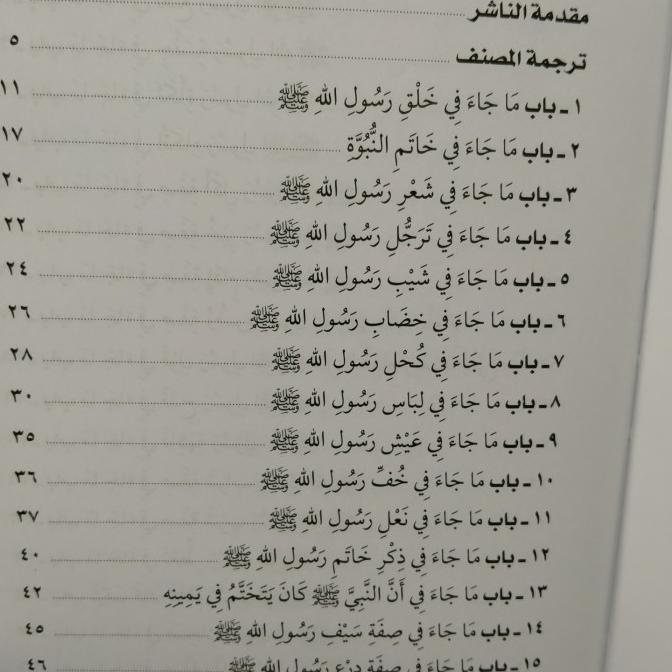 مقدمة الناشر
ترجمة المصنف ٥
١ ـ باب مَا جَاءَ فِي خَلْقِ رَسُولِ اللهِ ﷺ ١١
٢ ـ باب مَا جَاءَ فِي خَاتَمِ النُّبُوَّةِ ١٧
٣ ـ باب مَا جَاءَ فِي شَعْرِ رَسُولِ اللهِ ﷺ ٢٠
٤ ـ باب مَا جَاءَ فِي تَرَجُّلِ رَسُولِ اللهِ ﷺ ٢٢
٥ ـ باب مَا جَاءَ فِي شَيْبِ رَسُولِ اللهِ ﷺ ٢٤
٦ ـ باب مَا جَاءَ فِي خِضَابِ رَسُولِ اللهِ ﷺ ٢٦
٧ ـ باب مَا جَاءَ فِي كُحْلِ رَسُولِ اللهِ ﷺ ٢٨
٨ ـ باب مَا جَاءَ فِي لِبَاسِ رَسُولِ اللهِ ﷺ ٣٠
٩ ـ باب مَا جَاءَ فِي عَيْشِ رَسُولِ اللهِ ﷺ ٣٥
١٠ ـ باب مَا جَاءَ فِي خُفِّ رَسُولِ اللهِ ﷺ ٣٦
١١ ـ باب مَا جَاءَ فِي نَعْلِ رَسُولِ اللهِ ﷺ ٣٧
١٢ ـ باب مَا جَاءَ فِي ذِكْرِ خَاتَمِ رَسُولِ اللهِ ﷺ ٤٠
١٣ ـ باب مَا جَاءَ فِي أَنَّ النَّبِيَّ ﷺ كَانَ يَتَخَتَّمُ فِي يَمِينِهِ ٤٢
١٤ ـ باب مَا جَاءَ فِي صِفَةِ سَيْفِ رَسُولِ اللهِ ﷺ ٤٥
١٥ ـ باب مَا جَاءَ فِي صِفَةِ دِرْعِ رَسُولِ اللهِ ﷺ ٤٦